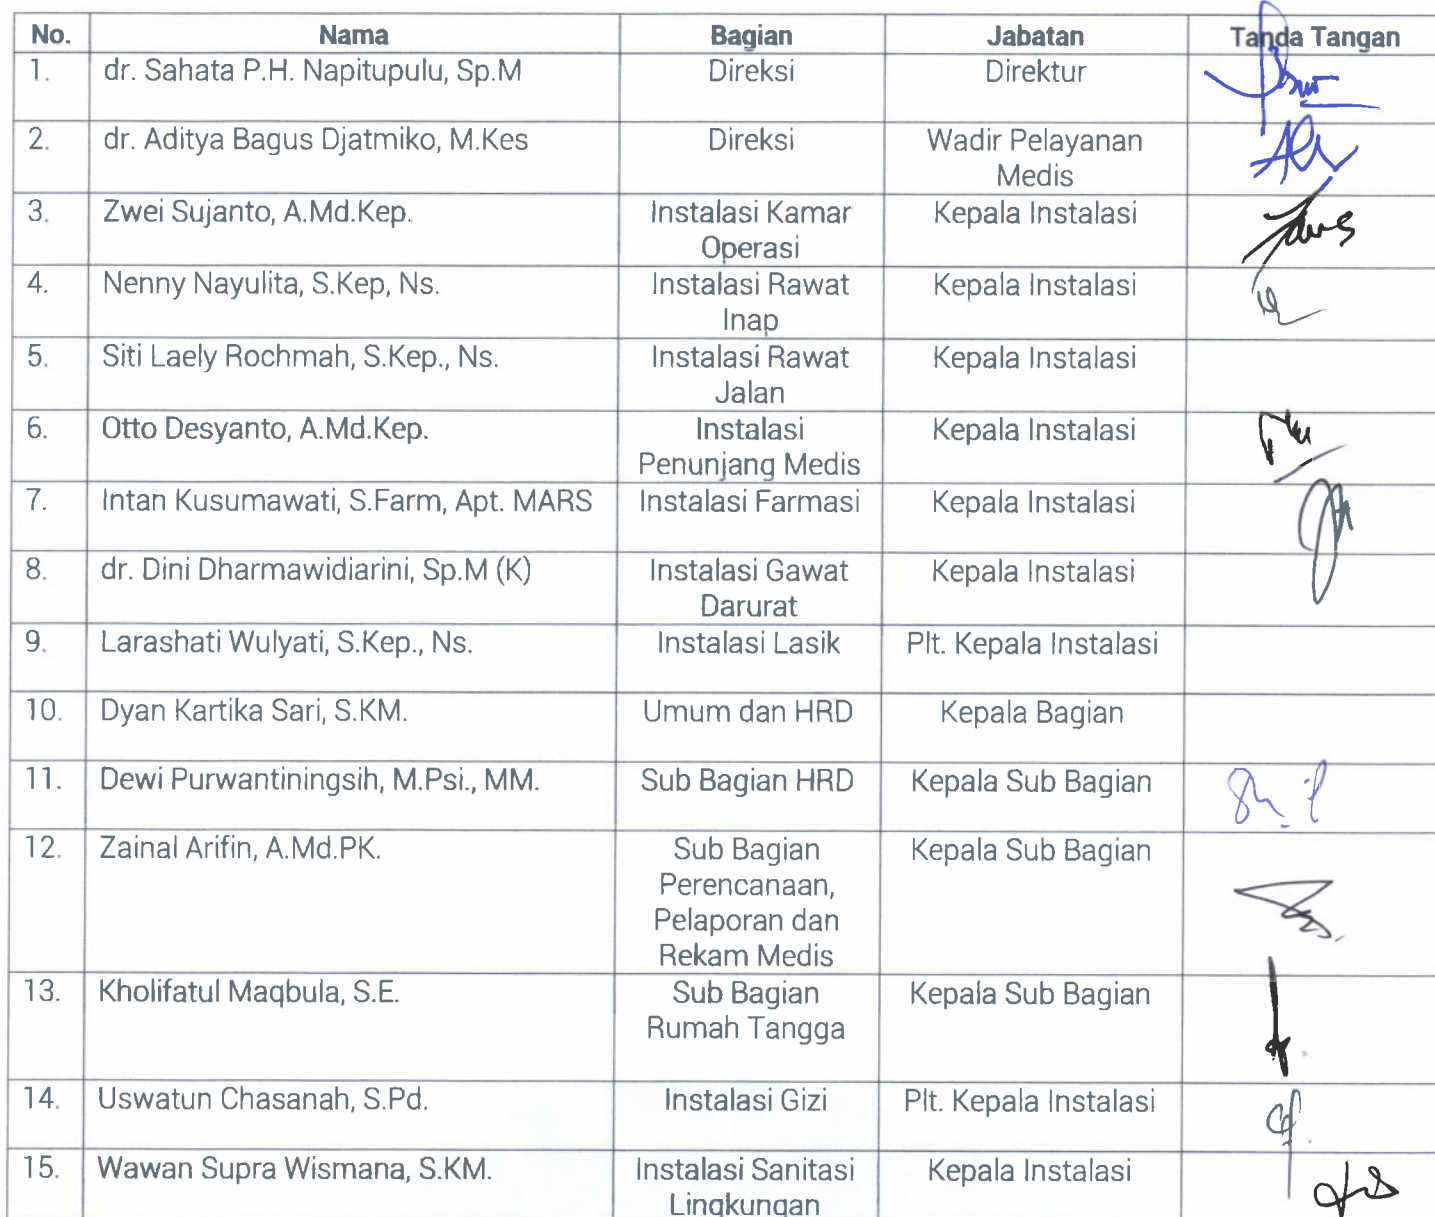 No. Nama Bagian Jabatan Tanda Tangan
1. dr. Sahata P.H. Napitupulu, Sp.M Direksi Direktur
2. dr. Aditya Bagus Djatmiko, M.Kes Direksi Wadir Pelayanan
Medis
3. Zwei Sujanto, A.Md.Kep. Instalasi Kamar Kepala Instalasi
Operasi
4. Nenny Nayulita, S.Kep, Ns. Instalasi Rawat Kepala Instalasi
Inap
5. Siti Laely Rochmah, S.Kep., Ns. Instalasi Rawat Kepala Instalasi
Jalan
6. Otto Desyanto, A.Md.Kep. Instalasi Kepala Instalasi
Penunjang Medis
7. Intan Kusumawati, S.Farm, Apt. MARS Instalasi Farmasi Kepala Instalasi
8. dr. Dini Dharmawidiarini, Sp.M (K) Instalasi Gawat Kepala Instalasi
Darurat
9. Larashati Wulyati, S.Kep., Ns. Instalasi Lasik Plt. Kepala Instalasi
10. Dyan Kartika Sari, S.KM. Umum dan HRD Kepala Bagian
11. Dewi Purwantiningsih, M.Psi., MM. Sub Bagian HRD Kepala Sub Bagian
12. Zainal Arifin, A.Md.PK. Sub Bagian Kepala Sub Bagian
Perencanaan,
Pelaporan dan
Rekam Medis
13. Kholifatul Maqbula, S.E. Sub Bagian Kepala Sub Bagian
Rumah Tangga
14. Uswatun Chasanah, S.Pd. Instalasi Gizi Plt. Kepala Instalasi
15. Wawan Supra Wismana, S.KM. Instalasi Sanitasi Kepala Instalasi
Lingkungan